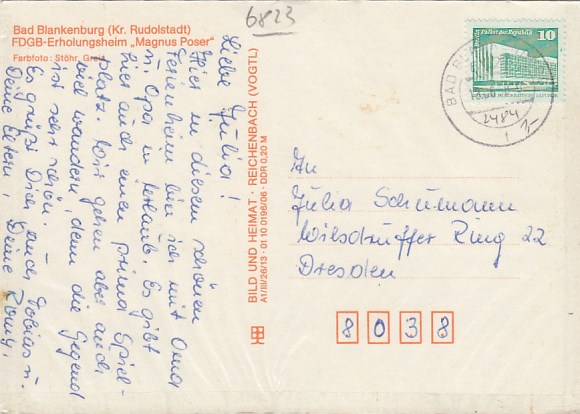 6823
Bad Blankenburg (Kr. Rudolstadt)
FDGB-Erholungsheim „Magnus Poser"
Farbfoto: Stöhr,
Liebe Julia!
Hier in diesem schönen
Ferienheim bin ich mit Oma
u. Opa in Urlaub. Es gibt
hier auch einen prima Spiel-
platz. Wir gehen aber auch
viel wandern, denn die Gegend
ist sehr schön.
Es grüßt Dich, auch Tobias u.
Deine Eltern, Deine
BILD UND HEIMAT · REICHENBACH (VOGTL)
A1/III/26/13 · 01 10 0196/06 · DDR 0,20 M
Palast der Republik
10
DDR
BAD
An
Julia Schumann
Wilsdruffer Ring 22
Dresden
8038